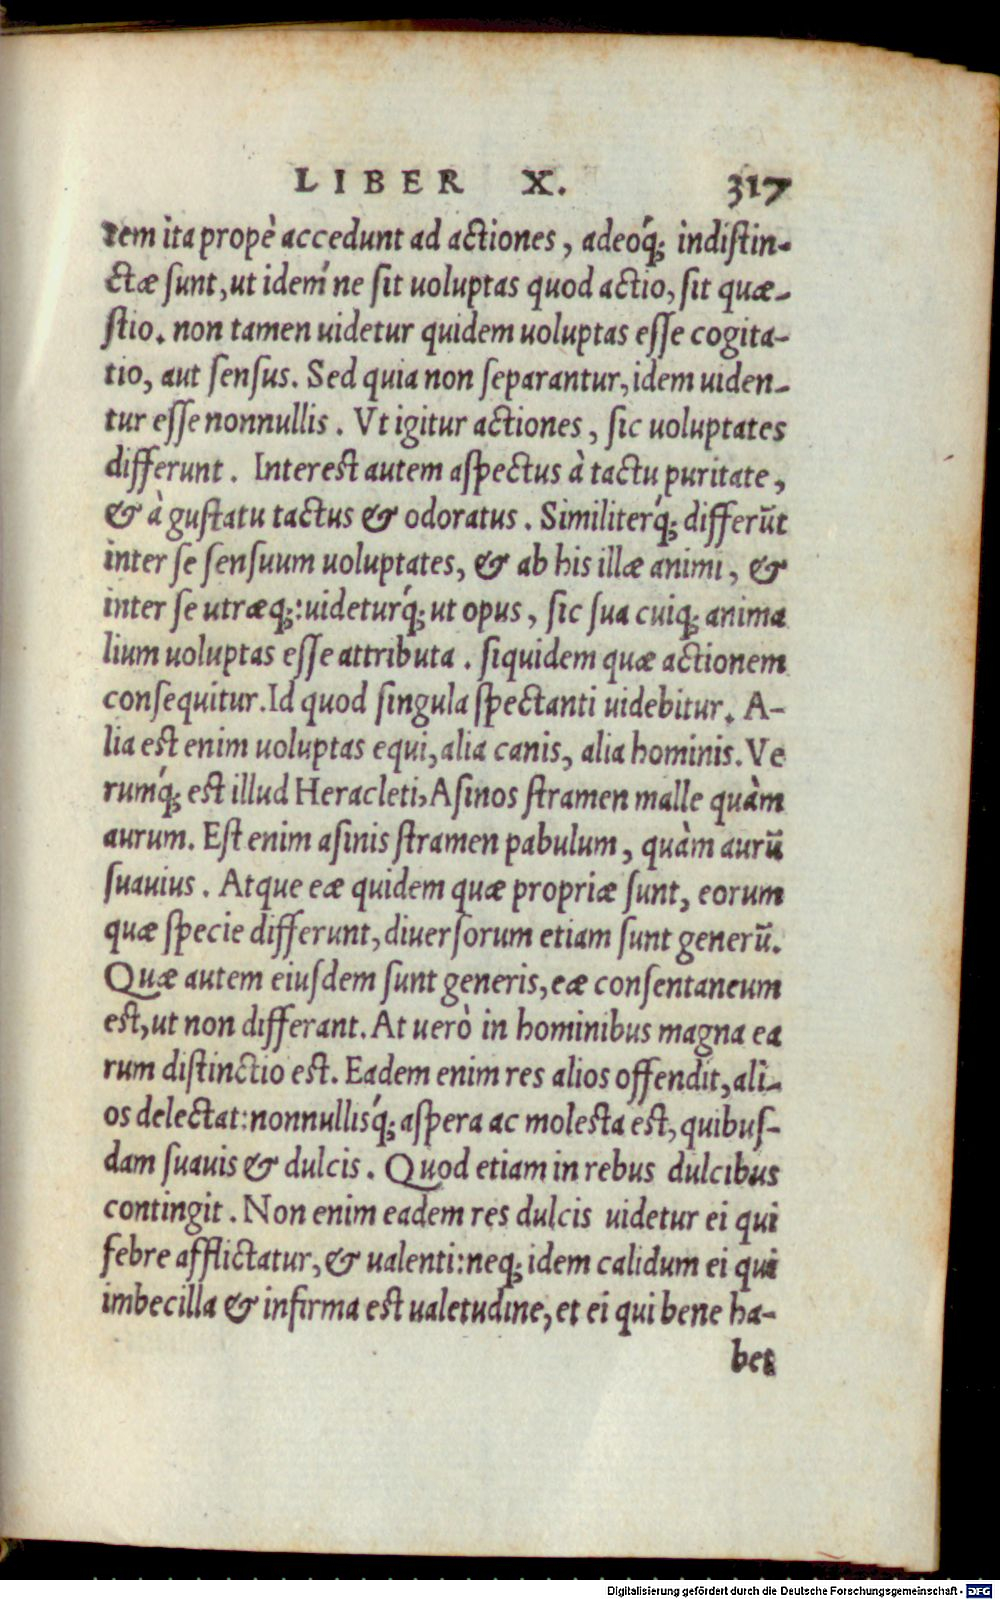 LIBER X. 317
tem ita propè accedunt ad actiones, adeoq́; indistin-
ctæ sunt, ut idem'ne sit uoluptas quod actio, sit quæ-
stio. non tamen uidetur quidem uoluptas esse cogita-
tio, aut sensus. Sed quia non separantur, idem uiden-
tur esse nonnullis. Vt igitur actiones, sic uoluptates
differunt. Interest autem aspectus à tactu puritate,
& à gustatu tactus & odoratus. Similiterq́; differūt
inter se sensuum uoluptates, & ab his illæ animi, &
inter se utræq;: uideturq́; ut opus, sic sua cuiq; anima
lium uoluptas esse attributa. siquidem quæ actionem
consequitur. Id quod singula spectanti uidebitur. A-
lia est enim uoluptas equi, alia canis, alia hominis. Ve
rumq́; est illud Heracleti, Asinos stramen malle quàm
aurum. Est enim asinis stramen pabulum, quàm aurū
suauius. Atque eæ quidem quæ propriæ sunt, eorum
quæ specie differunt, diuersorum etiam sunt generū.
Quæ autem eiusdem sunt generis, eæ consentaneum
est, ut non differant. At uerò in hominibus magna ea
rum distinctio est. Eadem enim res alios offendit, ali-
os delectat: nonnullisq́; aspera ac molesta est, quibus-
dam suauis & dulcis. Quod etiam in rebus dulcibus
contingit. Non enim eadem res dulcis uidetur ei qui
febre afflictatur, & ualenti: neq; idem calidum ei qui
imbecilla & infirma est ualetudine, et ei qui bene ha-
bet
Digitalisierung gefördert durch die Deutsche Forschungsgemeinschaft - DFG